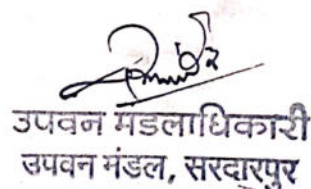 उपवन मडलाधिकारी
उपवन मंडल, सरदारपुर